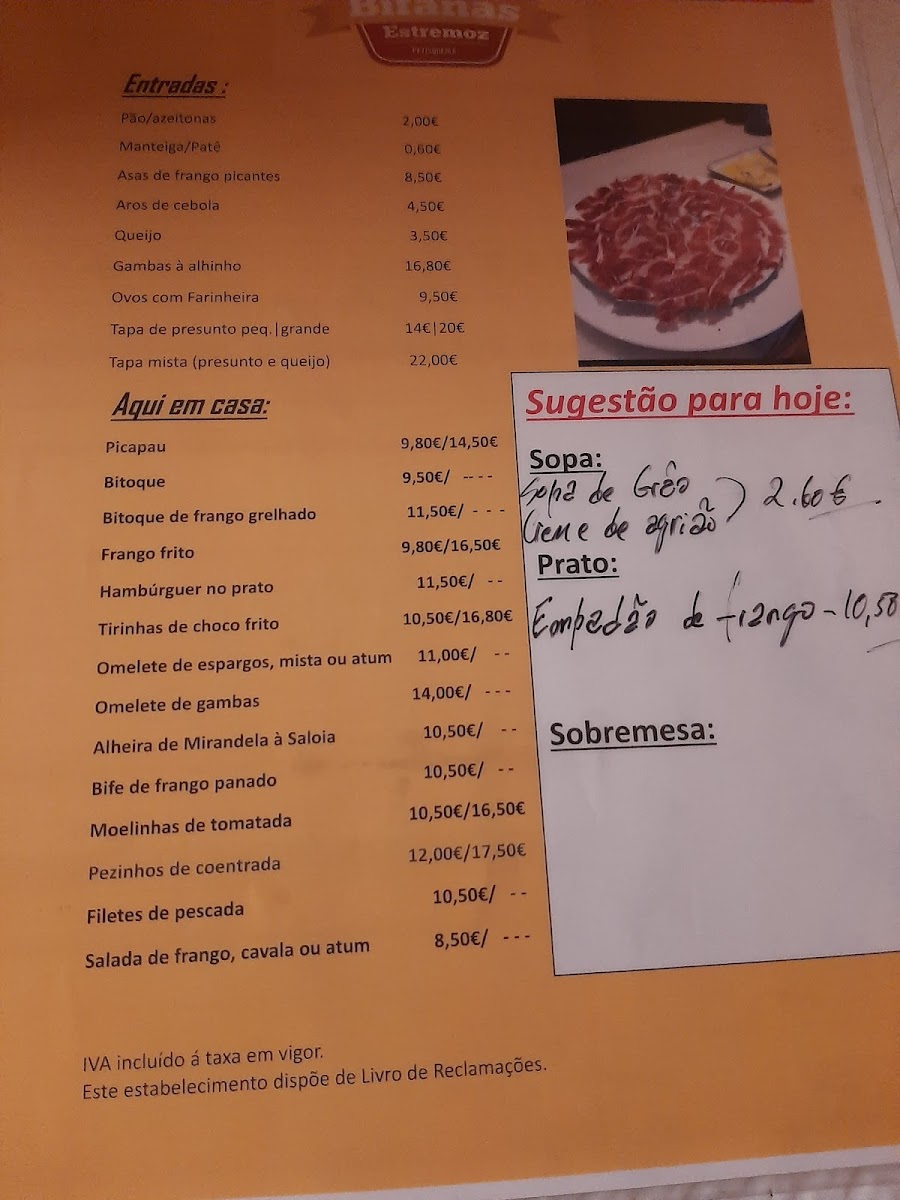 Bifanas
Estremoz
PETISQUEIRA
Entradas :
Pão/azeitonas 2,00€
Manteiga/Patê 0,60€
Asas de frango picantes 8,50€
Aros de cebola 4,50€
Queijo 3,50€
Gambas à alhinho 16,80€
Ovos com Farinheira 9,50€
Tapa de presunto peq.|grande 14€|20€
Tapa mista (presunto e queijo) 22,00€
Aqui em casa:
Picapau 9,80€/14,50€
Bitoque 9,50€/ ----
Bitoque de frango grelhado 11,50€/ - - -
Frango frito 9,80€/16,50€
Hambúrguer no prato 11,50€/ --
Tirinhas de choco frito 10,50€/16,80€
Omelete de espargos, mista ou atum 11,00€/ --
Omelete de gambas 14,00€/ ---
Alheira de Mirandela à Saloia 10,50€/ --
Bife de frango panado 10,50€/ --
Moelinhas de tomatada 10,50€/16,50€
Pezinhos de coentrada 12,00€/17,50€
Filetes de pescada 10,50€/ --
Salada de frango, cavala ou atum 8,50€/ ---
Sugestão para hoje:
Sopa:
Sopa de Grão
Creme de agrião ) 2.60€
Prato:
Empadão de frango - 10,50
Sobremesa:
IVA incluído á taxa em vigor.
Este estabelecimento dispõe de Livro de Reclamações.